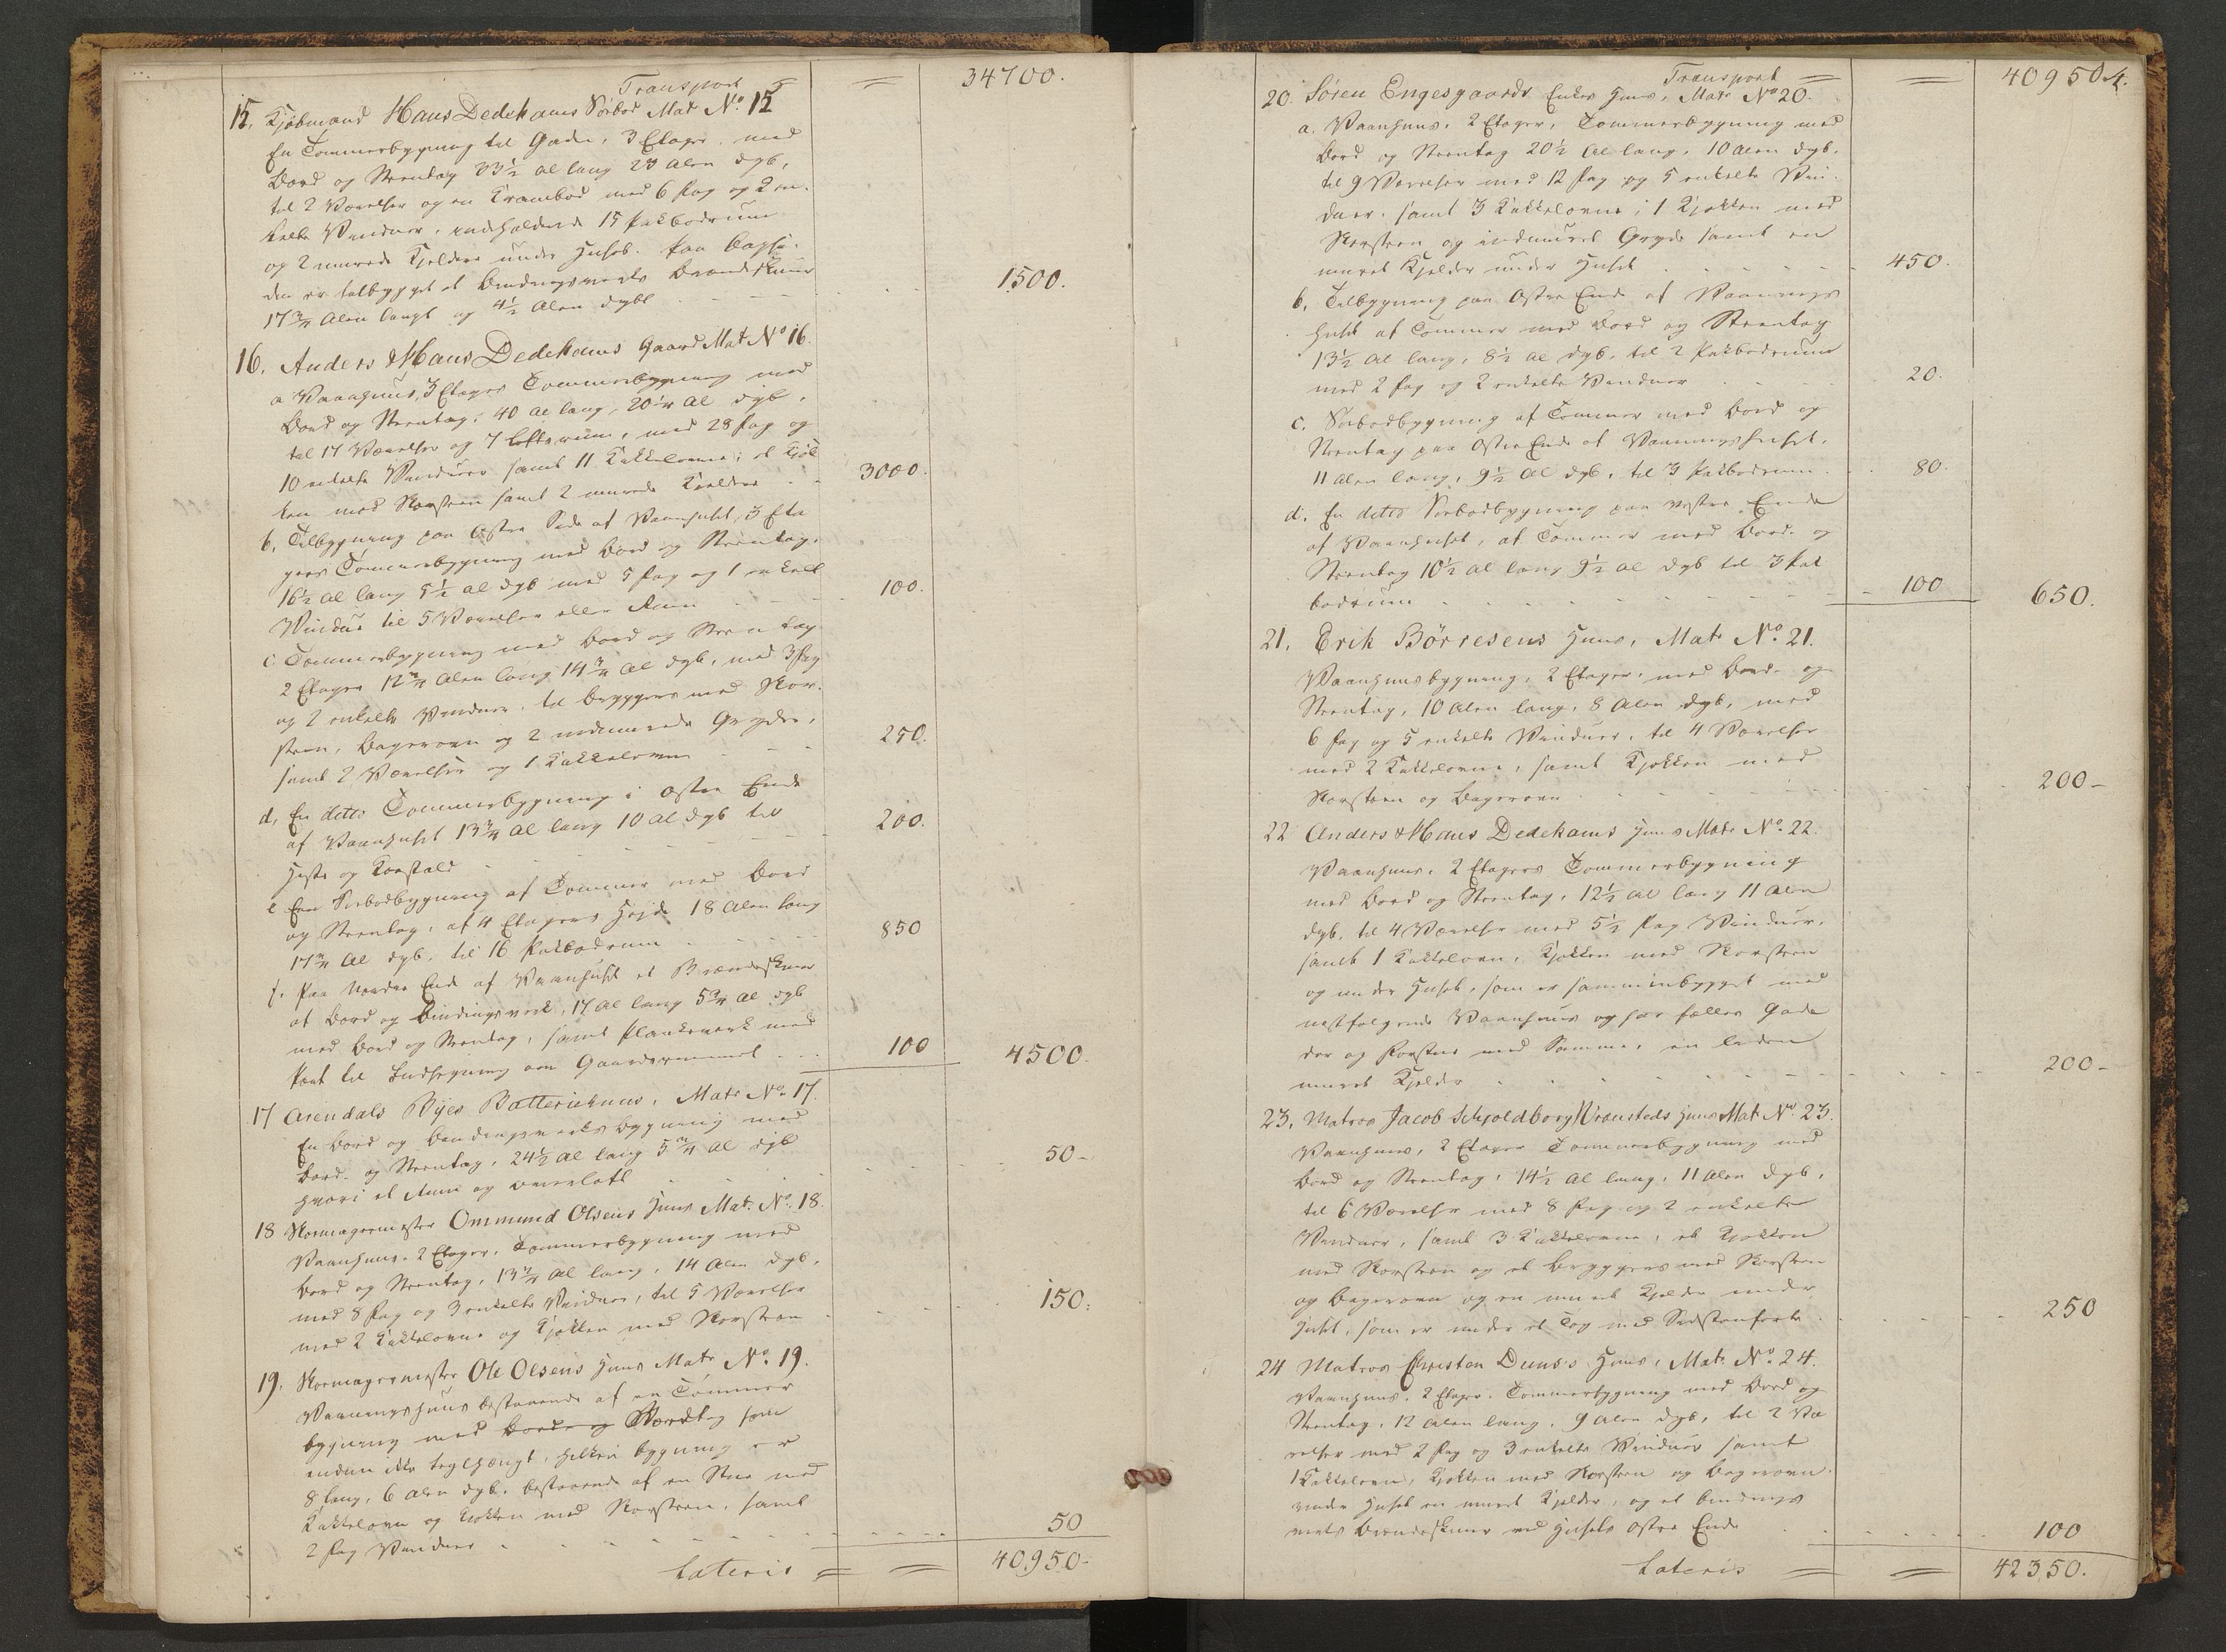 Transport = 34700.
15. Kjøbmand Hans Dedekams Søebod Mat No. 15
En Tømmerbygning til Gade, 3 Etager, med
Bord og Steentag 33½ al lang 23 alen dyb,
til 2 Værelser og en Krambod med 6 Fag og 2 en-
kelte Vinduer, indholdende 15 Pakbodrum
og 2 murede Kjeldere under Huset. Paa Bagsi-
den er tilbygget et Bindingsverks Brændeskuur
17¾ Alen langt og 4½ Alen dybt - - - 1500.
16. Anders & Hans Dedekams Gaard Mat No 16.
a Vaanhuus, 3 Etages Tømmerbygning med
Bord og Steentag, 40 al lang, 20¼ al dyb,
til 17 Værelser og 7 Loftsrum, med 28 Fag og
10 enkelte Vinduer samt 11 Kakkelovne; et Kjøk
ken med Skorsteen samt 2 murede Kjeldere - - 3000.
b, Tilbygning paa Østre Side af Vaanhuset, 3 Eta
gers Tømmerbygning med Bord og Steentag,
16½ al lang 5½ al dyb med 5 Fag og 1 enkelt
Vindue til 5 Værelser eller Rum - - - 100.
c. Tømmerbygning med Bord og Steentag
2 Etager 12¾ Alen lang 14¾ al dyb, med 3 Fag
og 2 enkelte Vinduer, til Bryggers med Skor-
steen, Bagerovn og 2 indmurede Gryder,
samt 2 Værelser og 1 Kakkelovn - - 250.
d, En ditto Tømmerbygning i Østre Ende
af Vaanhuset 13¾ al lang 10 al dyb til
Heste og Koestald - - - 200.
e En Søebodbygning af Tømmer med Bord
og Steentag, af 4 Etagers Højde 18 Alen lang
17¾ al dyb, til 16 Pakbodrum - - - 850
f. Paa Nordre Ende af Vaanhuset et Brændeskuur
af Bord og Bindingsverk, 17 al lang 5¾ al dyb
med Bord og Steentag, samt Plankeverk med
Port til Indhegning om Gaardsrummet - - 100 4500.
17 Arendals Byes Batteriehuus, Matr No. 17.
En Bord og Bindingsverks bygning med
Bord og Steentag, 24½ al lang 5¾ al dyb
hvori et Rum og Overloft - - - 50-
18 Skomagermester Ommund Olsens Huus Mat. No. 18.
Vaanhuus, 2 Etager, Tømmerbygning med
Bord og Steentag, 13¾ al lang, 14 Alen dyb,
med 8 Fag og 3 enkelte Vinduer, til 5 Værelser
med 2 Kakkelovne og Kjøkken med Skorsteen - - 150.
19. Skomagermester Ole Olsens Huus Matr No. 19.
Vaaningshuus bestaaende af en Tømmer
bygning med Bord og Bordtag som
endnu ikke teglhængt, hvilken bygning er
8 lang, 6 Alen dyb, bestaaende af en Stue med
Kakkelovn og Kjøkken med Skorsteen, samt
2 Fag Vinduer - - - 50
Lateris = = 40950-
Transport = = 40950 -
20. Søren Engesgaards Enkes Huus, Matr No 20.
a. Vaanhuus, 2 Etager, Tømmerbygning med
Bord og Steentag 20½ al lang, 10 Alen dyb,
til 9 Værelser med 12 Fag og 5 enkelte Vin-
duer, samt 3 Kakkelovne; 1 Kjøkken med
Skorsteen og indmuret Gryde samt en
muret Kjelder under Huset - - - 450.
b, Tilbygning paa Østre Ende af Vaanings
huset af Tømmer med Bord og Steentag
13½ al lang, 8½ al dyb, til 2 Pakbodrum
med 2 Fag og 2 enkelte Vinduer - - - 20.
c. Søebodbygning af Tømmer med Bord og
Steentag paa Østre Ende af Vaaningshuset,
11 Alen lang, 9½ al dyb, til 3 Pakbodrum - - 80.
d. En ditto Søebodbygning paa vestre Ende
af Vaanhuset, af Tømmer med Bord og
Steentag 10½ al lang 9½ al dyb til 3 Pak
bodrum - - - 100 650.
21, Erik Börresens Huus, Matr No. 21.
Vaanhuusbygning, 2 Etager, med Bord og
Steentag, 10 Alen lang, 8 Alen dyb, med
6 Fag og 5 enkelte Vinduer, til 4 Værelser
med 2 Kakkelovne, samt Kjøkken med
Skorsteen og Bagerovn - - - 200-
22 Anders & Hans Dedekams Huus Matr No. 22.
Vaanhuus, 2 Etagers Tømmerbygning
med Bord og Steentag, 12½ al lang 11 Alen
dyb, til 4 Værelser med 5½ Fag Vinduer,
samt 1 Kakkelovn, Kjøkken med Skorsteen
og under Huset, som er sammenbygget med
næstfølgende Vaanhuus og har fælles Gade
dør og Forstue med Samme, en liden
muret Kjelder - - - 200-
23, Matros Jacob Schjoldborg Vraasteds Huus Mat No. 23.
Vaanhuus, 2 Etager Tømmerbygning med
Bord og Steentag, 14½ al lang, 11 Alen dyb,
til 6 Værelser med 8 Fag og 2 enkelte
Vinduer, samt 3 Kakkelovne, et Kjøkken
med Skorsteen og et Bryggers med Skorsteen
og Bagerovn og en muret Kjelder under
Huset, som er under et Tag med Sidstanførte - - 250
24 Matros Christen Duus's Huus, Matr No. 24.
Vaanhuus, 2 Etager, Tømmerbygning med Bord og
Steentag, 12 Alen lang, 9 Alen dyb, til 2 Væ
relser med 2 Fag og 3 enkelte Vinduer samt
1 Kakkelovn, Kjøkken med Skorsteen og Bagerovn.
under Huset en muret Kjelder, og et Bindings
verks Brændeskuur ved Husets Østre Ende - - - 100
Lateris = = 42350.